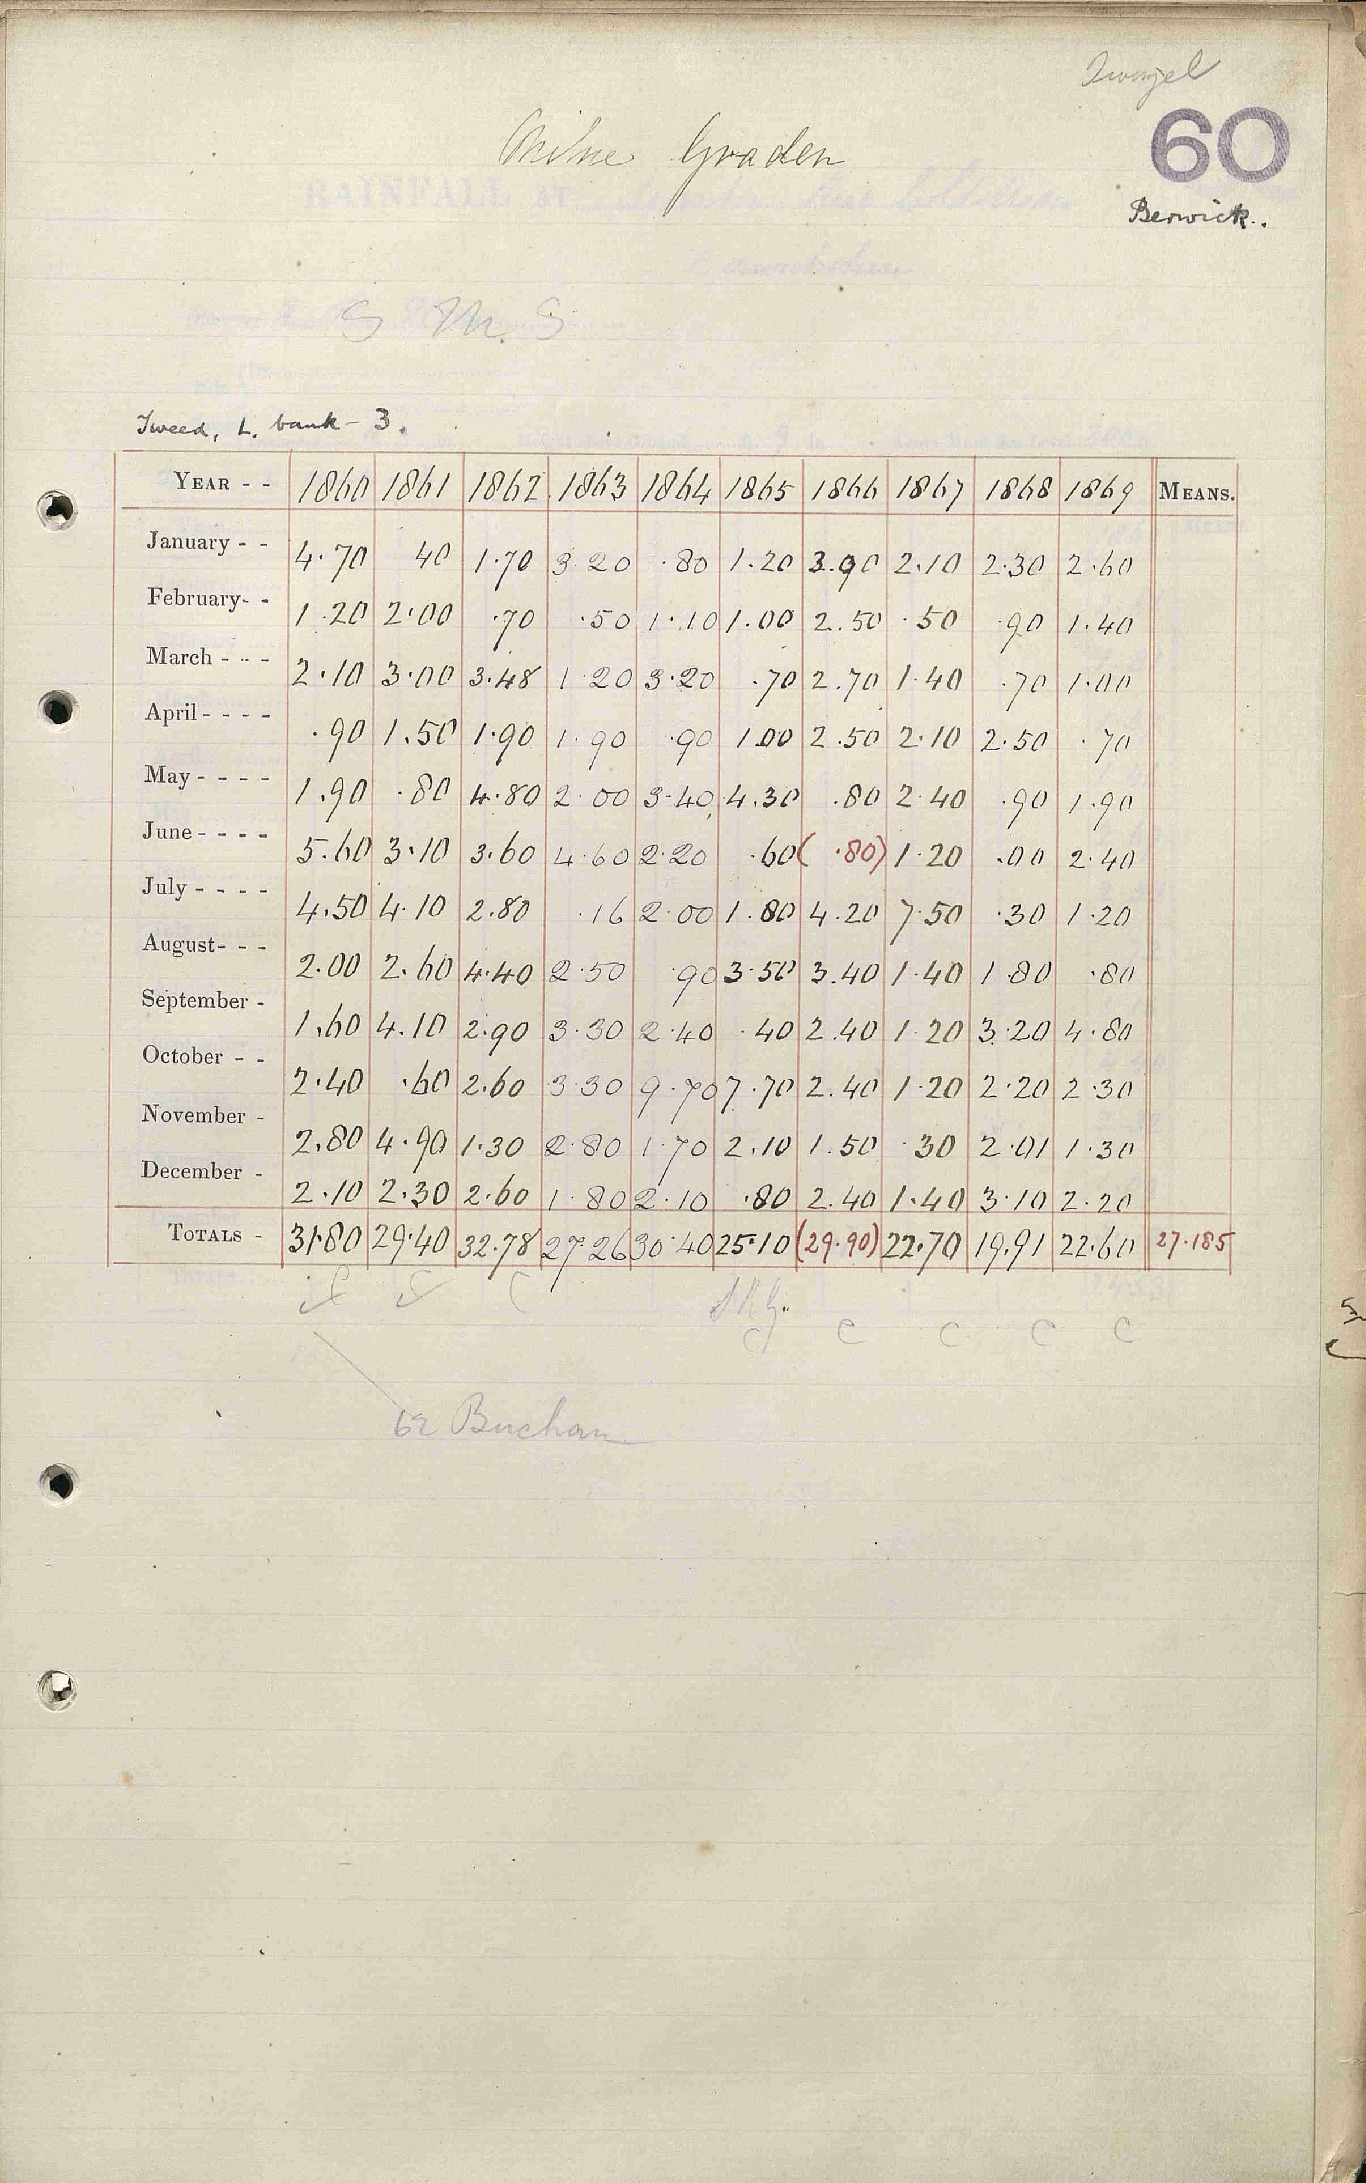 Twizel
60
Milne Graden
Berwick.
S M S
Tweed, L. bank - 3.
YEAR - - 1860 1861 1862 1863 1864 1865 1866 1867 1868 1869 MEANS.
January - - 4.70 40 1.70 3.20 .80 1.20 3.90 2.10 2.30 2.60
February - - 1.20 2.00 .70 .50 1.10 1.00 2.50 .50 .90 1.40
March - - - 2.10 3.00 3.48 1.20 3.20 .70 2.70 1.40 .70 1.00
April - - - - .90 1.50 1.90 1.90 .90 1.00 2.50 2.10 2.50 .70
May - - - - 1.90 .80 4.80 2.00 3.40 4.30 .80 2.40 .90 1.90
June - - - - 5.60 3.10 3.60 4.60 2.20 .60 ( .80) 1.20 .00 2.40
July - - - - 4.50 4.10 2.80 .16 2.00 1.80 4.20 7.50 .30 1.20
August - - - 2.00 2.60 4.40 2.50 .90 3.50 3.40 1.40 1.80 .80
September - 1.60 4.10 2.90 3.30 2.40 .40 2.40 1.20 3.20 4.80
October - - 2.40 .60 2.60 3.30 9.70 7.70 2.40 1.20 2.20 2.30
November - 2.80 4.90 1.30 2.80 1.70 2.10 1.50 .30 2.01 1.30
December - 2.10 2.30 2.60 1.80 2.10 .80 2.40 1.40 3.10 2.20
TOTALS - 31.80 29.40 32.78 27.26 30.40 25.10 (29.90) 22.70 19.91 22.60 27.185
C C C C C C
62 Buchan